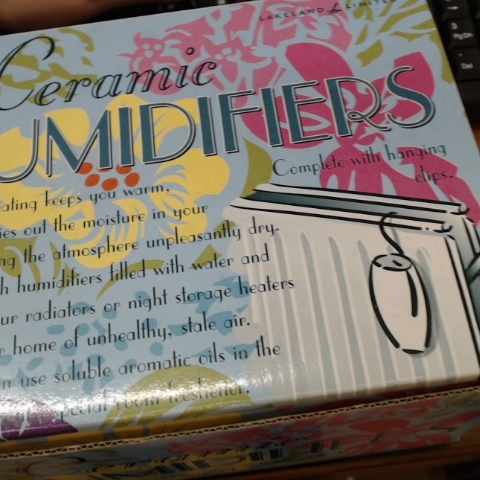 LAKELAND LIMITED
Ceramic
UMIDIFIERS
Complete with hanging
clips.
ating keeps you warm.
ies out the moisture in your
ng the atmosphere unpleasantly dry.
h humidifiers filled with water and
ur radiators or night storage heaters
r home of unhealthy, stale air.
n use soluble aromatic oils in the
special room freshener.
PgDn
Del